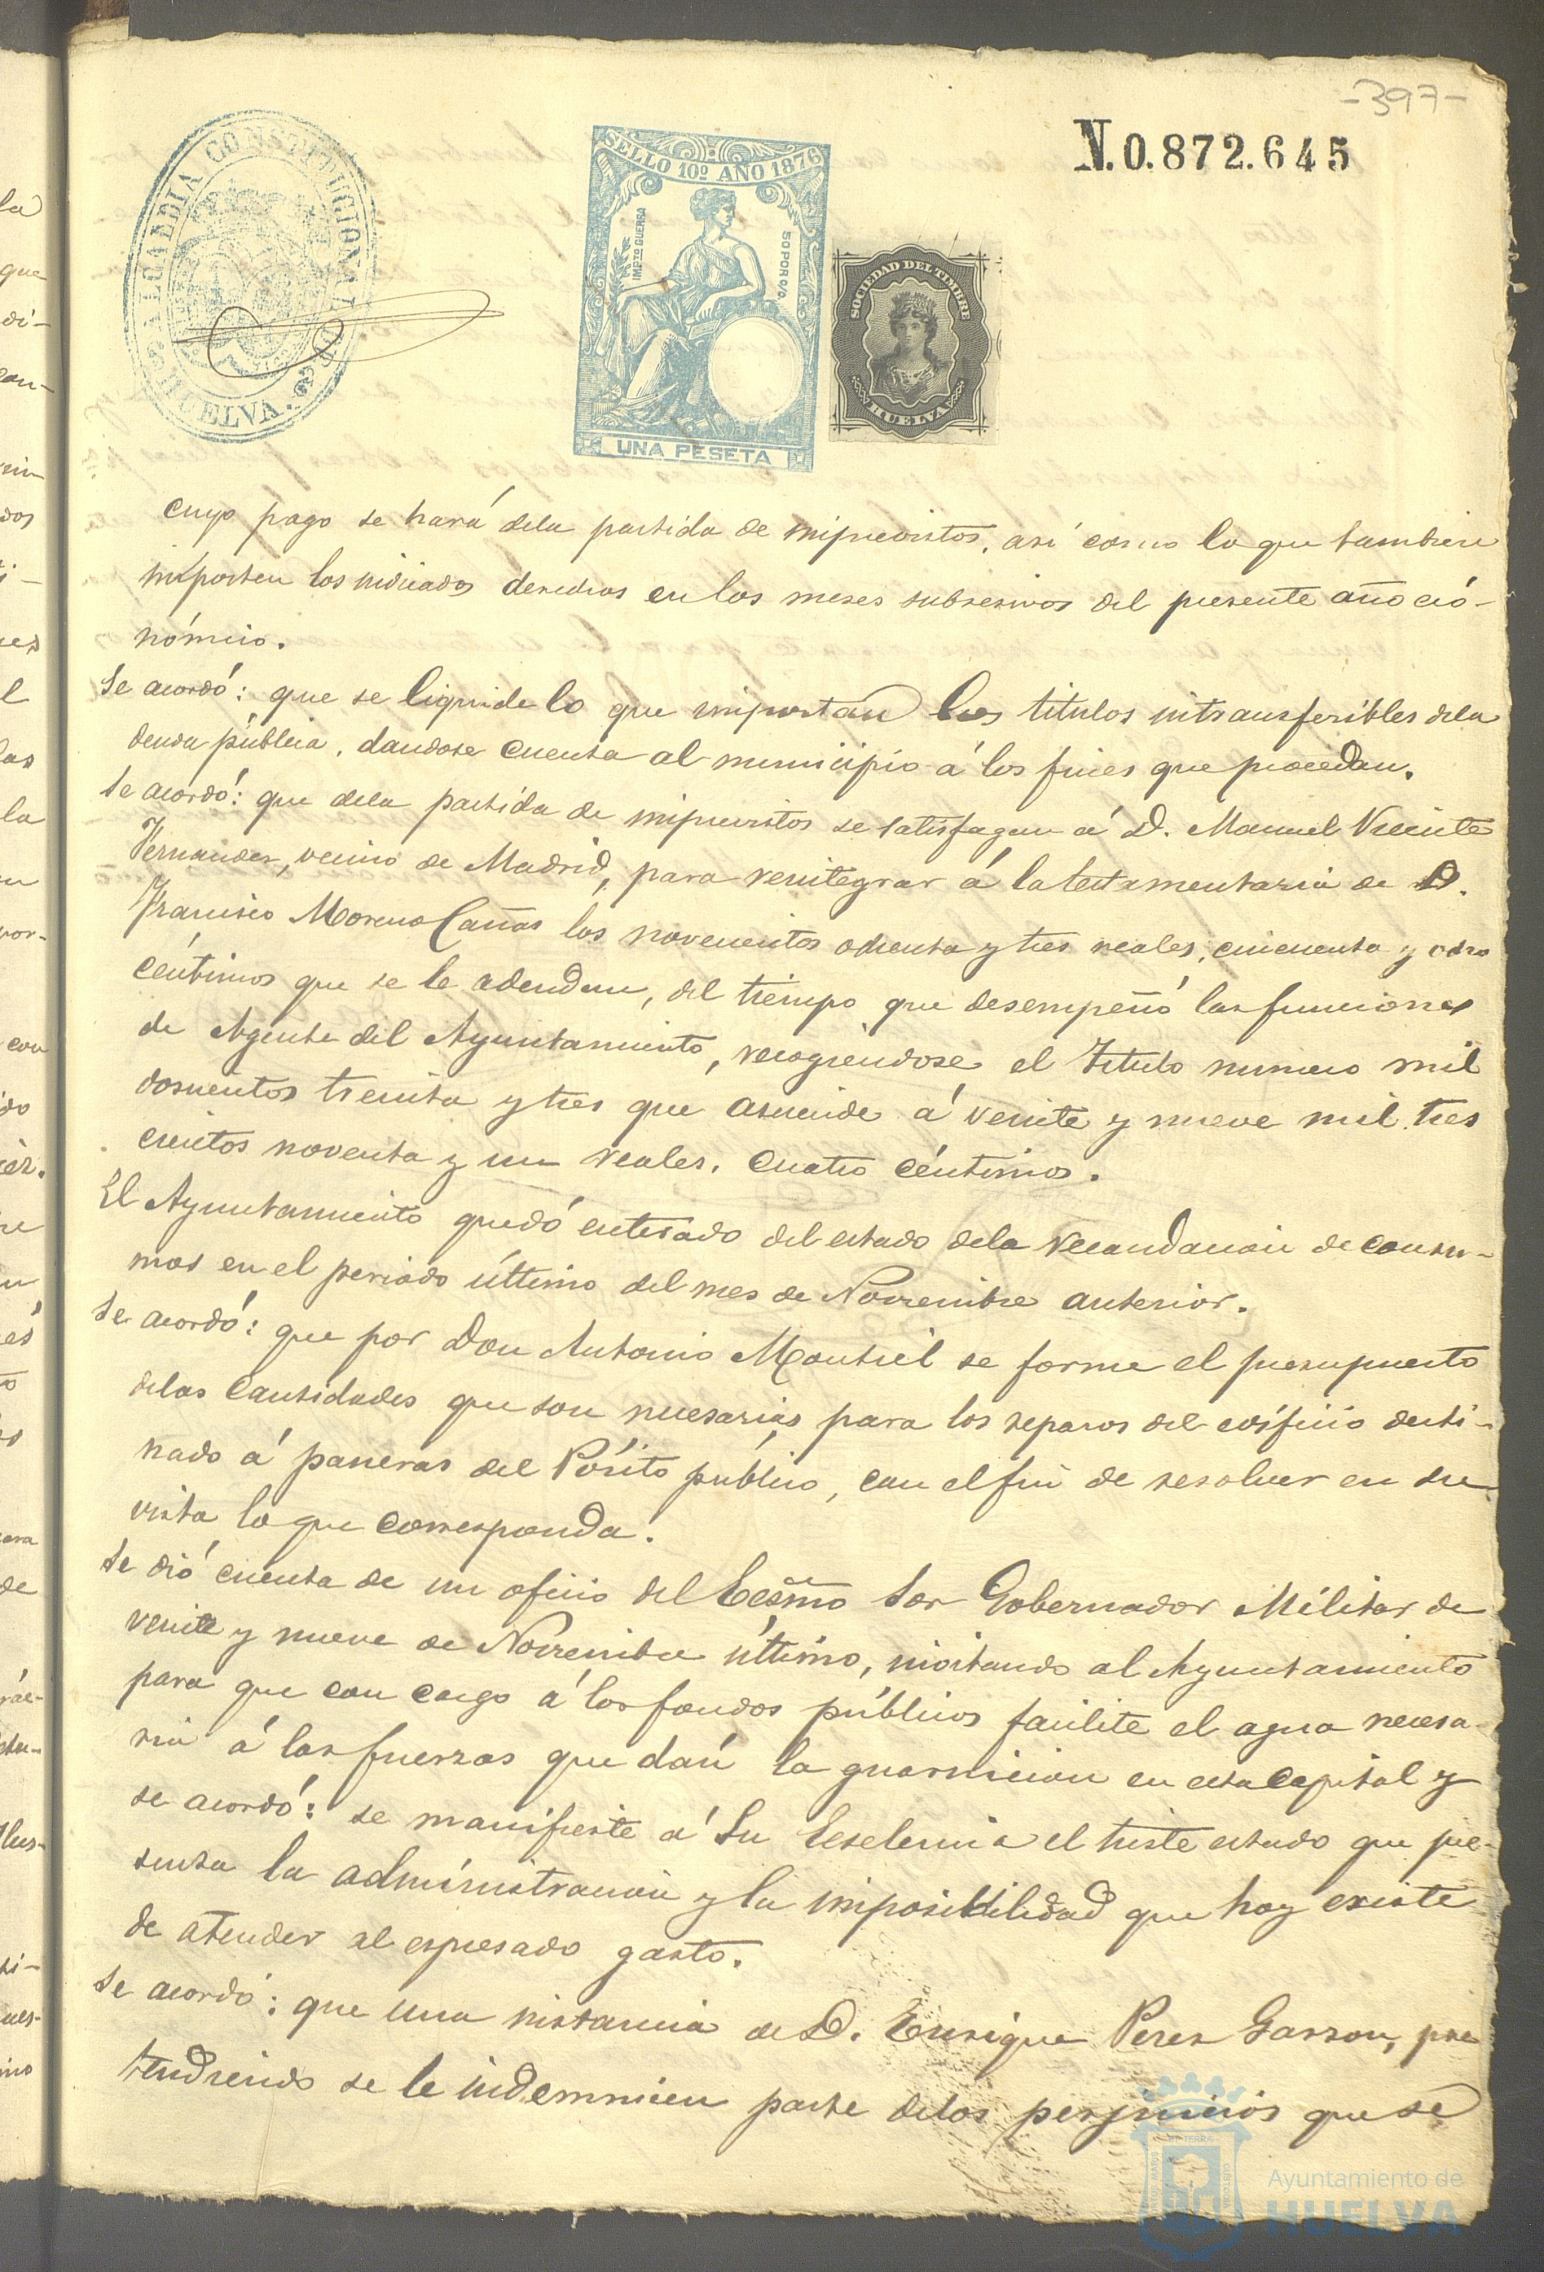 -397-
N.0.872.645
ALCALDIA CONSTITUCIONAL DE
HUELVA.
SELLO 10º AÑO 1876
IMPTO GUERRA
50 POR C/O
UNA PESETA
SOCIEDAD DEL TIMBRE
HUELVA
cuyo pago se hará dela partida de imprevistos, así como lo que tambien
importen los indicados derechos en los meses subsesivos del presente año ecó-
nómico.
Se acordó: que se liquide lo que importan los titulos intransferibles dela
deuda pública, dandose cuenta al municipio á los fines que procedan.
Se acordó: que dela partida de imprevistos se satisfagan á D. Manuel Vicente
Fernandez, vecino de Madrid, para reintegrar á la testamentaria de D.
Francisco Moreno Cañas los novecientos ochenta y tres reales, cincuenta y ocho
céntimos que se le adeudan, del tiempo que desempeñó las funciones
de Agente del Ayuntamiento, recogiendose el Titulo numero mil
doscientos treinta y tres que asciende á veinte y nueve mil tres
cientos noventa y un reales, cuatro céntimos.
El Ayuntamiento quedó enterado del estado dela recaudacion de consu-
mos en el periodo último del mes de Noviembre anterior.
Se acordó: que por Don Antonio Montiel se forme el presupuesto
delas cantidades que son necesarias para los reparos del edificio desti-
nado á paneras del Pósito público, con el fin de resolver en su
vista lo que corresponda.
Se dió cuenta de un oficio del Ecsmo Sor Gobernador Militar de
veinte y nueve de Noviembre último, incitando al Ayuntamiento
para que con cargo á los fondos públicos facilite el agua necesa-
ria á las fuerzas que dan la guarnicion en esta Capital y
se acordó: se manifieste á Su Eccelencia el triste estado que pre-
senta la administracion y la imposibilidad que hoy existe
de atender al espresado gasto.
Se acordó: que una instancia de D. Enrique Perez Garzon, pre
tendiendo se le indemnicen parte delos perjuicios que se
Ayuntamiento de
HUELVA